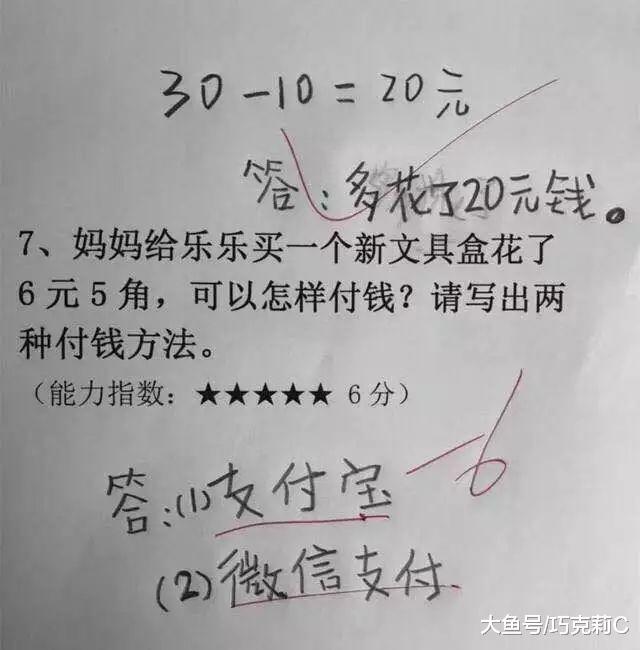 30-10=20元
答:多花了20元钱。
7、妈妈给乐乐买一个新文具盒花了
6元5角，可以怎样付钱？请写出两
种付钱方法。
（能力指数：★★★★★ 6分）
-6
答:(1)支付宝
(2)微信支付
大鱼号/巧克莉C